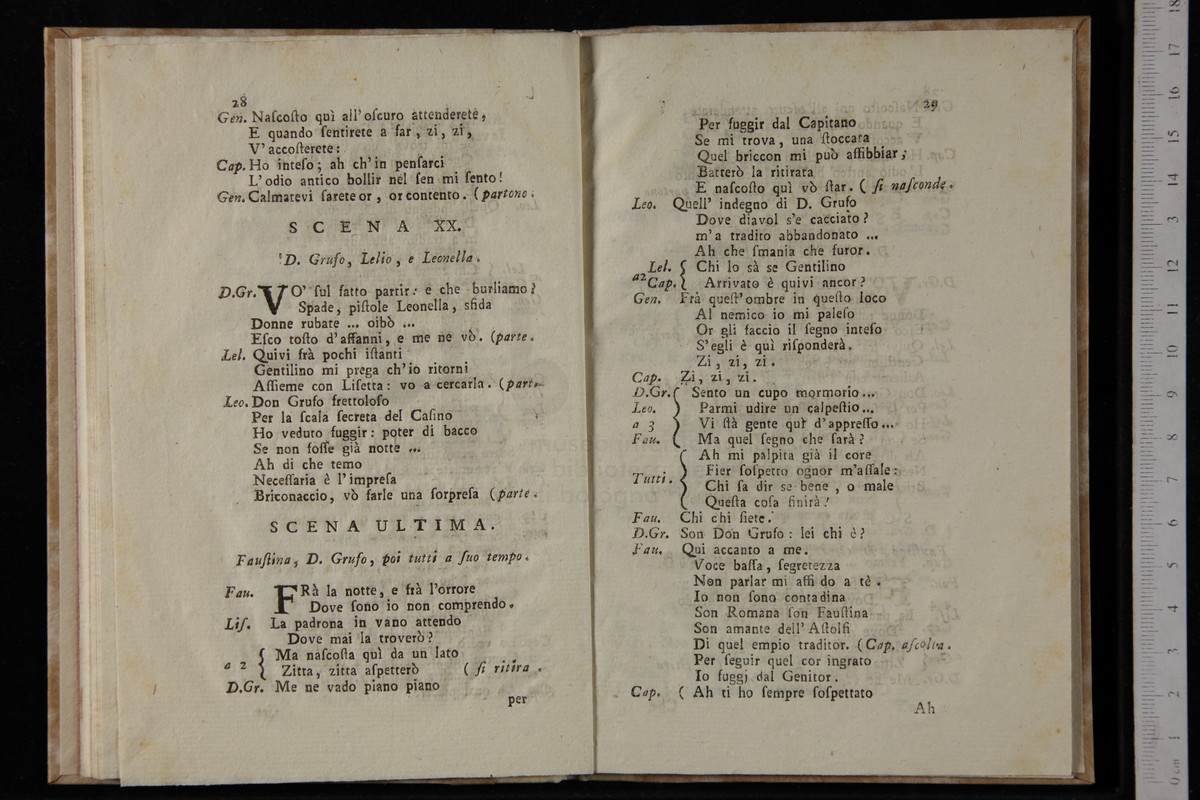 28
Gen. Naſcoſto quì all' oſcuro attenderete,
E quando ſentirete a far, zi, zi,
V' accoſterete:
Cap. Ho inteſo; ah ch' in penſarci
L' odio antico bollir nel ſen mi ſento!
Gen. Calmatevi ſarete or, or contento. (partono.
SCENA XX.
D. Grufo, Lelio, e Leonella.
D.Gr. VO' ſul fatto partir: e che burliamo?
Spade, piſtole Leonella, sfida
Donne rubate ... oibò ...
Eſco toſto d' affanni, e me ne vò. (parte.
Lel. Quivi frà pochi iſtanti
Gentilino mi prega ch' io ritorni
Aſſieme con Liſetta: vo a cercarla. (part.
Leo. Don Grufo frettoloſo
Per la ſcala ſecreta del Caſino
Ho veduto fuggir: poter di bacco
Se non foſſe già notte ...
Ah di che temo
Neceſſaria è l' impreſa
Briconaccio, vò farle una ſorpreſa (parte.
SCENA ULTIMA.
Fauſtina, D. Grufo, poi tutti a ſuo tempo.
Fau. FRà la notte, e frà l'orrore
Dove ſono io non comprendo.
Liſ. La padrona in vano attendo
Dove mai la troverò?
a 2 { Ma naſcoſta quì da un lato
Zitta, zitta aſpetterò ( ſi ritira .
D.Gr. Me ne vado piano piano
per
29
Per fuggir dal Capitano
Se mi trova, una ſtoccata
Quel briccon mi può affibbiar;
Batterò la ritirata
E naſcoſto quì vò ſtar. ( ſi naſconde.
Leo. Quell' indegno di D. Grufo
Dove diavol s'e cacciato?
m'a tradito abbandonato ...
Ah che ſmania che furor.
Lel. { Chi lo sà se Gentilino
a2 Cap. { Arrivato è quivi ancor?
Gen. Frà queſt' ombre in queſto loco
Al nemico io mi paleſo
Or gli faccio il ſegno inteſo
S' egli è quì riſponderà.
Zi, zi, zi.
Cap. Zi, zi, zi.
D.Gr. Sento un cupo mormorio...
Leo. Parmi udire un calpeſtio...
a 3 Vi ſtà gente quì d' appreſſo...
Fau. Ma quel ſegno che ſarà?
Ah mi palpita già il core
Tutti. Fier ſoſpetto ognor m'aſſale:
Chi ſa dir se bene, o male
Queſta coſa finirà!
Fau. Chi chi ſiete.
D.Gr. Son Don Grufo: lei chi è?
Fau. Qui accanto a me.
Voce baſſa, ſegretezza
Non parlar mi affi do a tè.
Io non ſono contadina
Son Romana ſon Fauſtina
Son amante dell' Aſtolfi
Di quel empio traditor. (Cap. aſcolta.
Per ſeguir quel cor ingrato
Io fuggj dal Genitor.
Cap. ( Ah ti ho ſempre ſoſpettato
Ah